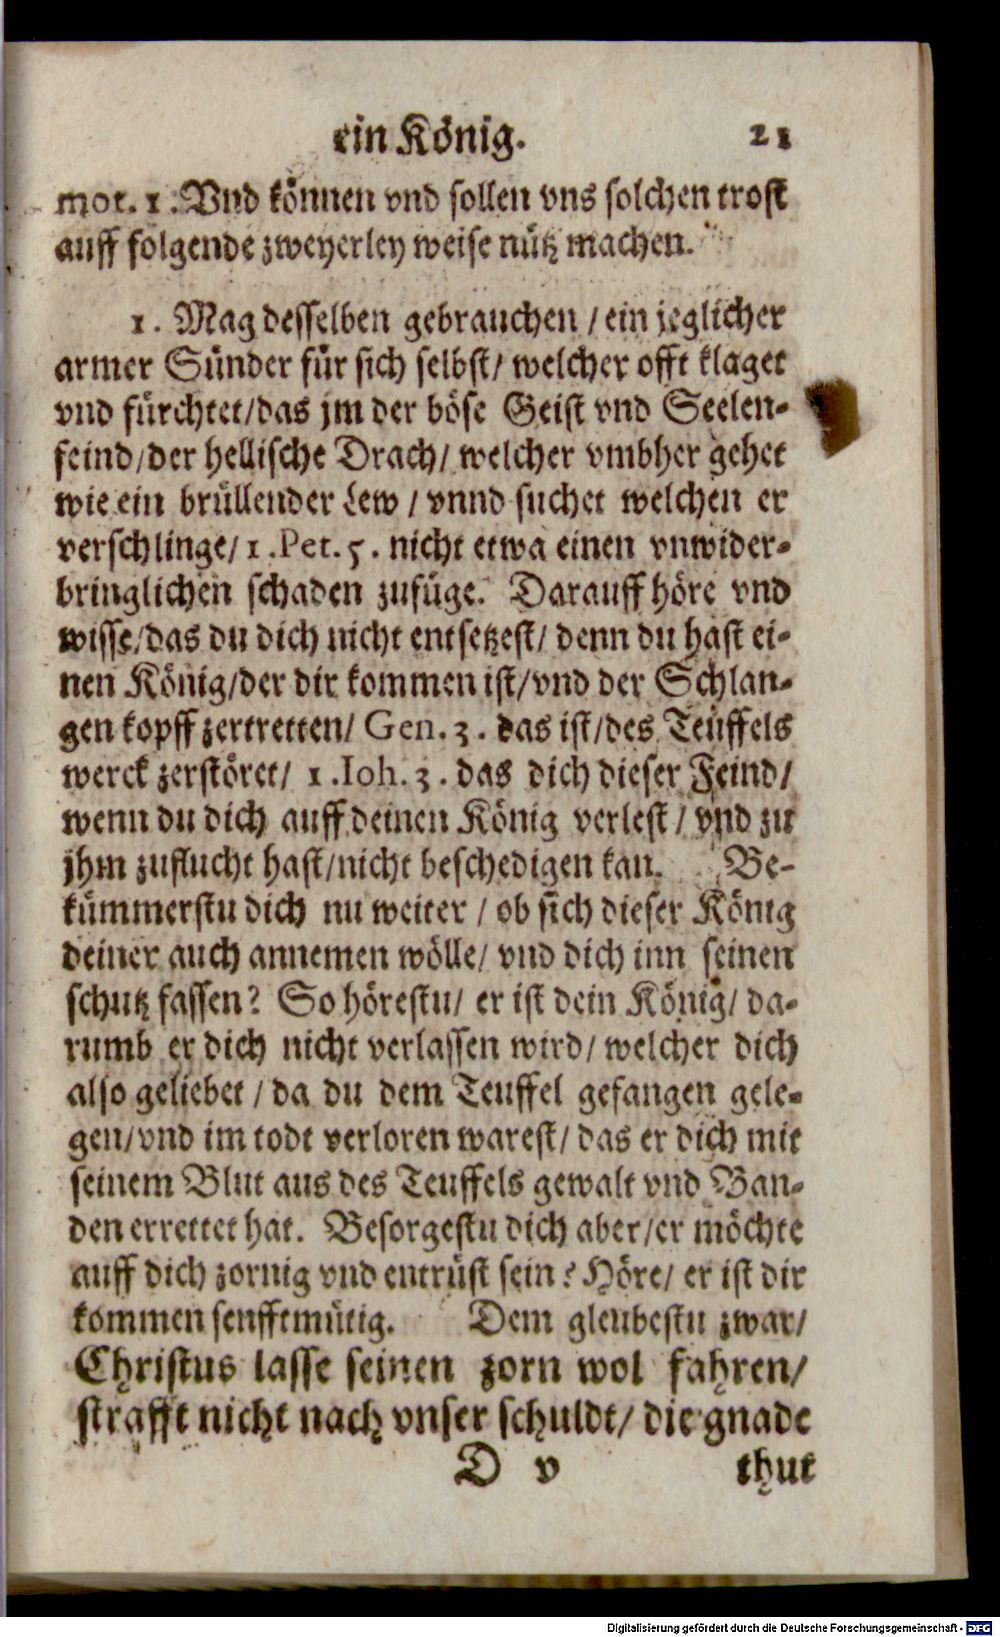 ein König. 21
mot. 1. Vnd können vnd sollen vns solchen trost
auff folgende zweyerley weise nütz machen.
1. Mag desselben gebrauchen / ein jeglicher
armer Sünder für sich selbst / welcher offt klaget
vnd fürchtet / das jm der böse Geist vnd Seelen-
feind / der hellische Drach / welcher vmbher gehet
wie ein brüllender Lew / vnnd suchet welchen er
verschlinge / 1. Pet. 5. nicht etwa einen vnwider-
bringlichen schaden zufüge. Darauff höre vnd
wisse / das du dich nicht entsetzest / denn du hast ei-
nen König / der dir kommen ist / vnd der Schlan-
gen kopff zertretten / Gen. 3. das ist / des Teuffels
werck zerstöret / 1. Ioh. 3. das dich dieser Feind /
wenn du dich auff deinen König verlest / vnd zu
jhm zuflucht hast / nicht beschedigen kan. Be-
kümmerstu dich nu weiter / ob sich dieser König
deiner auch annemen wölle / vnd dich inn seinen
schutz fassen? So hörestu / er ist dein König / da-
rumb er dich nicht verlassen wird / welcher dich
also geliebet / da du dem Teuffel gefangen gele-
gen / vnd im todt verloren warest / das er dich mit
seinem Blut aus des Teuffels gewalt vnd Ban-
den errettet hat. Besorgestu dich aber / er möchte
auff dich zornig vnd entrüst sein? Höre / er ist dir
kommen senfftmütig. Dem gleubestu zwar /
Christus lasse seinen zorn wol fahren /
strafft nicht nach vnser schuldt / die gnade
D v thut
Digitalisierung gefördert durch die Deutsche Forschungsgemeinschaft - DFG